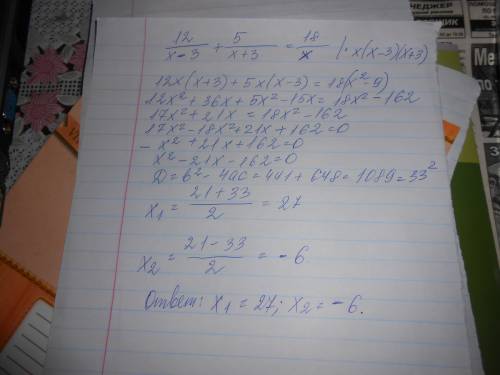 12/(x-3) + 5/(x+3) = 18/x | · x(x-3)(x+3)
12x(x+3) + 5x(x-3) = 18(x²-9)
12x² + 36x + 5x² - 15x = 18x² - 162
17x² + 21x = 18x² - 162
17x² - 18x² + 21x + 162 = 0
- x² + 21x + 162 = 0
x² - 21x - 162 = 0
D = b² - 4ac = 441 + 648 = 1089 = 33²
x₁ = (21+33)/2 = 27
x₂ = (21-33)/2 = -6
Ответ: x₁ = 27; x₂ = -6.